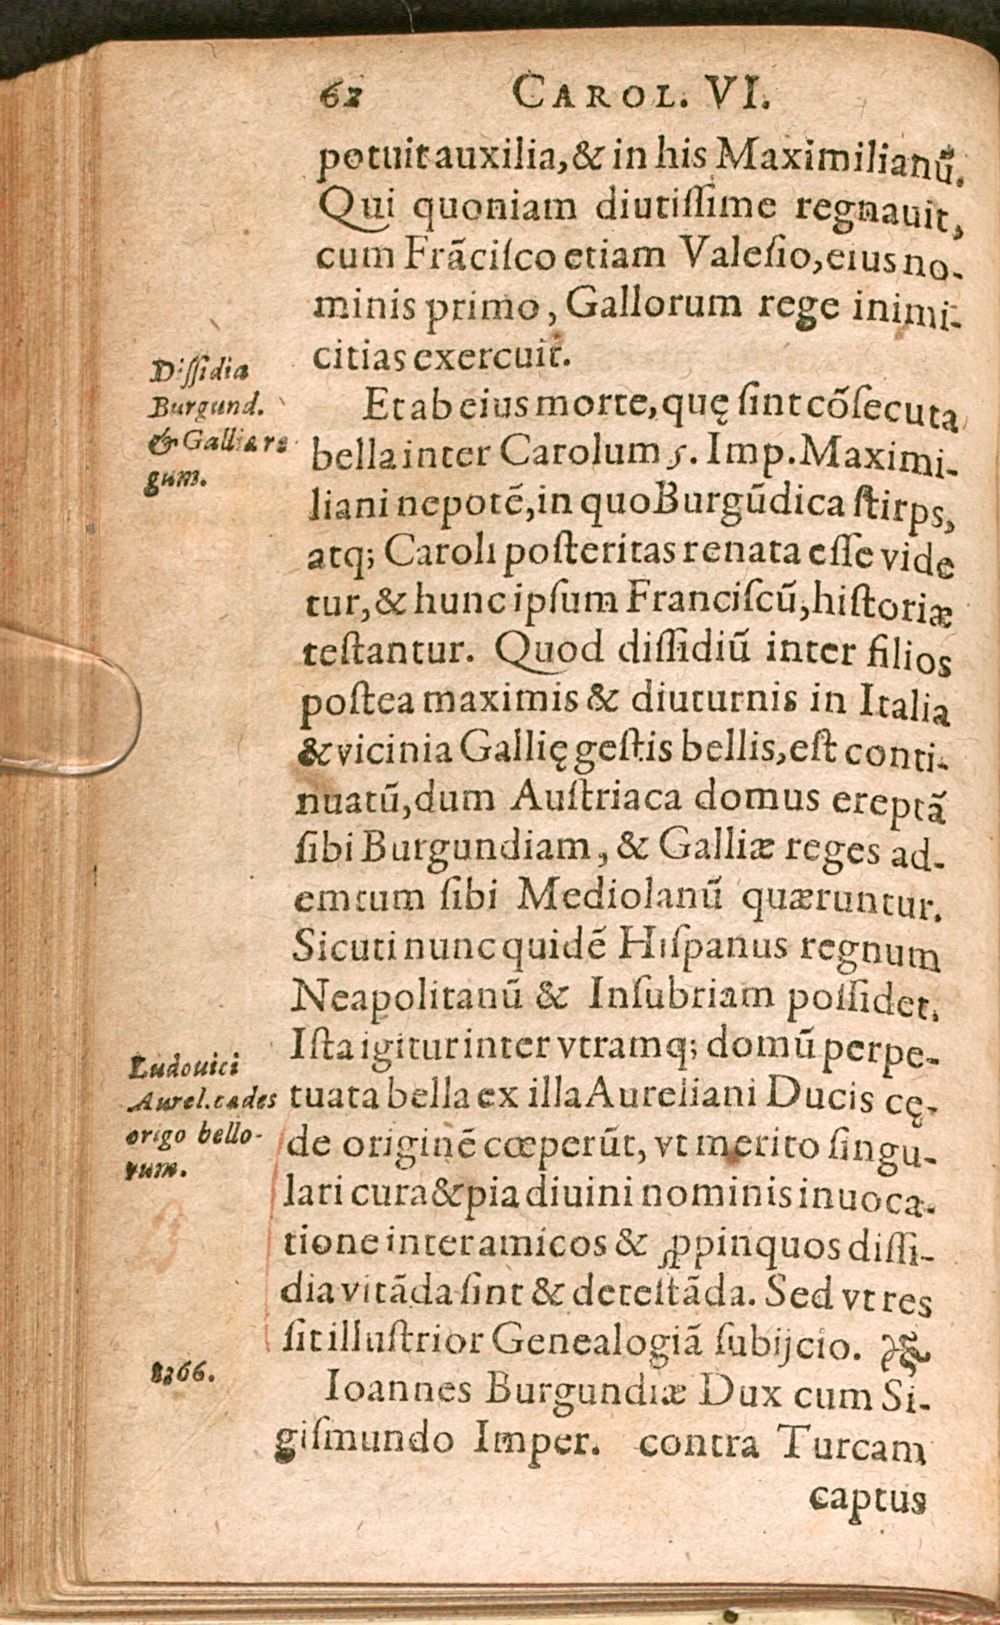 62 CAROL. VI.
potuit auxilia, & in his Maximilianũ.
Qui quoniam diutiſſime regnauit,
cum Frãciſco etiam Valeſio, eius no-
minis primo, Gallorum rege inimi-
citias exercuit.
Diſſidia
Burgund.
& Galliæ re
gum.
Et ab eius morte, quę ſint cõſecuta
bella inter Carolum 5. Imp. Maximi-
liani nepotẽ, in quo Burgũdica ſtirps,
atq; Caroli poſteritas renata eſſe vide
tur, & hunc ipſum Franciſcũ, hiſtoriæ
teſtantur. Quod diſſidiũ inter filios
poſtea maximis & diuturnis in Italia
& vicinia Gallię geſtis bellis, eſt conti-
nuatũ, dum Auſtriaca domus ereptã
ſibi Burgundiam, & Galliæ reges ad-
emtum ſibi Mediolanũ quæruntur.
Sicuti nunc quidẽ Hiſpanus regnum
Neapolitanũ & Inſubriam poſſidet.
Iſta igitur inter vtramq; domũ perpe-
Ludouici
Aurel. cædes
origo bello-
rum.
tuata bella ex illa Aureliani Ducis cę-
de originẽ cœperũt, vt merito ſingu-
lari cura & pia diuini nominis inuoca-
tione inter amicos & ꝓpinquos diſſi-
dia vitãda ſint & deteſtãda. Sed vt res
ſit illuſtrior Genealogiã ſubijcio.
Ioannes Burgundiæ Dux cum Si-
giſmundo Imper. contra Turcam
captus